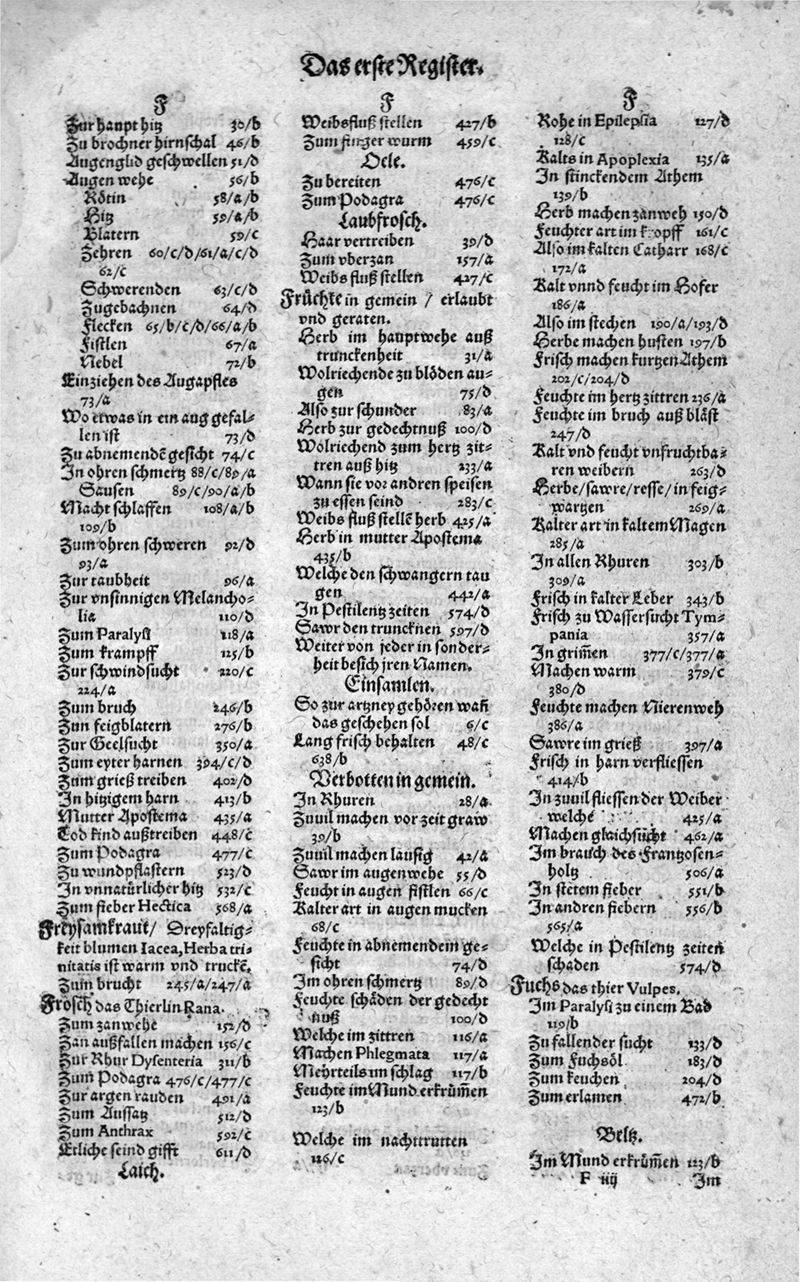 Das erste Register.
F
Zur haupt hitz 30/b
Zu brochner hirnschal 46/b
Augenglid geschwellen 51/d
Augen wehe 56/b
Rötin 58/a/b
Hitz 59/a/b
Blatern 59/c
Zehren 60/c/d/61/a/c/d
62/c
Schwerenden 63/c/d
Zugebachnen 64/d
Flecken 65/b/c/d/66/a/b
Fistlen 67/a
Nebel 72/b
Einziehen des Augapffes
73/a
Wo etwas in ein aug gefal-
len ist 73/d
Zu abnemendē gesicht 74/c
In ohren schmertz 88/c/89/a
Sausen 89/c/90/a/b
Macht schlaffen 108/a/b
109/b
Zum ohren schweren 92/d
93/a
Zur taubheit 96/a
Zur vnsinnigen Melancho-
lia 110/d
Zum Paralysi 118/a
Zum krampff 125/b
Zur schwindsucht 220/c
224/a
Zum bruch 246/b
Zun feigblatern 276/b
Zur Geelsucht 350/a
Zum eyter harnen 394/c/d
Zum grieß treiben 402/d
In hitzigem harn 413/b
Mutter Apostema 435/a
Tod kind außtreiben 448/c
Zum Podagra 477/c
Zu wundpflastern 523/d
In vnnatürlicher hitz 532/c
Zum fieber Hectica 568/a
Freysamkraut/ Dreyfaltig-
keit blumen Iacea, Herba tri-
nitatis ist warm vnd truckē.
Zum brucht 245/a/247/a
Frosch das Thierlin Rana.
Zum zanwehe 152/d
Zan außfallen machen 156/c
Zur Rhur Dysenteria 311/b
Zum Podagra 476/c/477/c
Zur argen rauden 491/a
Zum Aussatz 512/d
Zum Anthrax 592/c
Etliche seind gifft 611/d
Laich.
F
Weibsfluß stellen 427/b
Zum finger wurm 459/c
Oele.
Zu bereiten 476/c
Zum Podagra 476/c
Laubfrosch.
Haar vertreiben 39/d
Zum vberzan 157/a
Weibs fluß stellen 427/c
Früchte in gemein / erlaubt
vnd geraten.
Herb im hauptwehe auß
trunckenheit 31/a
Wolriechende zu blöden au-
gen 75/d
Also zur schunder 83/a
Herb zur gedechtnuß 100/d
Wolriechend zum hertz zit-
tren auß hitz 233/a
Wann sie vor andren speisen
zu essen seind 283/c
Weibs fluß stellē herb 425/a
Herb in mutter Apostema
435/b
Welche den schwangern tau
gen 442/a
In Pestilentz zeiten 574/d
Sawr den truncknen 597/d
Weiter von jeder in sonder-
heit besich jren Namen.
Einsamlen.
So zur artzney gehören wañ
das geschehen sol 6/c
Lang frisch behalten 48/c
638/b
Verbotten in gemein.
In Rhuren 28/a
Zuuil machen vor zeit graw
39/b
Zuuil machen lausig 42/a
Sawr im augenwehe 55/d
Feucht in augen fistlen 66/c
Kalter art in augen mucken
68/c
Feuchte in abnemendem ge-
sicht 74/d
Im ohren schmertz 89/d
Feuchte schäden der gedecht
nuß 100/d
Welche im zittren 116/a
Machen Phlegmata 117/a
Mehrteils im schlag 117/b
Feuchte im Mund erkrüm̃en
123/b
Welche im nachttrutten
126/c
F
Rohe in Epilepsia 127/d
128/c
Kalts in Apoplexia 135/a
In stinckendem Athem
139/b
Herb machen zanweh 150/d
Feuchter art im kropff 161/c
Also im kalten Catharr 168/c
172/a
Kalt vnnd feucht im Hofer
186/a
Also im stechen 190/a/193/d
Herbe machen husten 197/b
Frisch machen kurtzen Athem
202/c/204/d
Feuchte im hertz zittren 236/a
Feuchte im bruch auß bläst
247/d
Kalt vnd feucht vnfruchtba-
ren weibern 263/d
Herbe/sawre/resse/in feig-
wartzen 269/a
Kalter art in kaltem Magen
285/a
In allen Rhuren 303/b
309/a
Frisch in kalter Leber 343/b
Frisch zu Wassersucht Tym-
pania 357/a
In grim̃en 377/c/377/a
Machen warm 379/c
380/d
Feuchte machen Nierenweh
386/a
Sawre im grieß 397/a
Frisch in harn verfliessen
414/b
In zuuil fliessen der Weiber
welche 425/a
Machen gleichsücht 462/a
Im brauch des Frantzosen-
holtz 506/a
In stetem fieber 551/b
In andren fiebern 556/b
565/a
Welche in Pestilentz zeiten
schaden 574/d
Fuchs das thier Vulpes.
Im Paralysi zu einem Bad
119/b
Zu fallender sucht 133/d
Zum Fuchsöl 183/d
Zum keuchen 204/d
Zum erlamen 472/b
Beltz.
Im Mund erkrüm̃en 123/b
F iiij Im